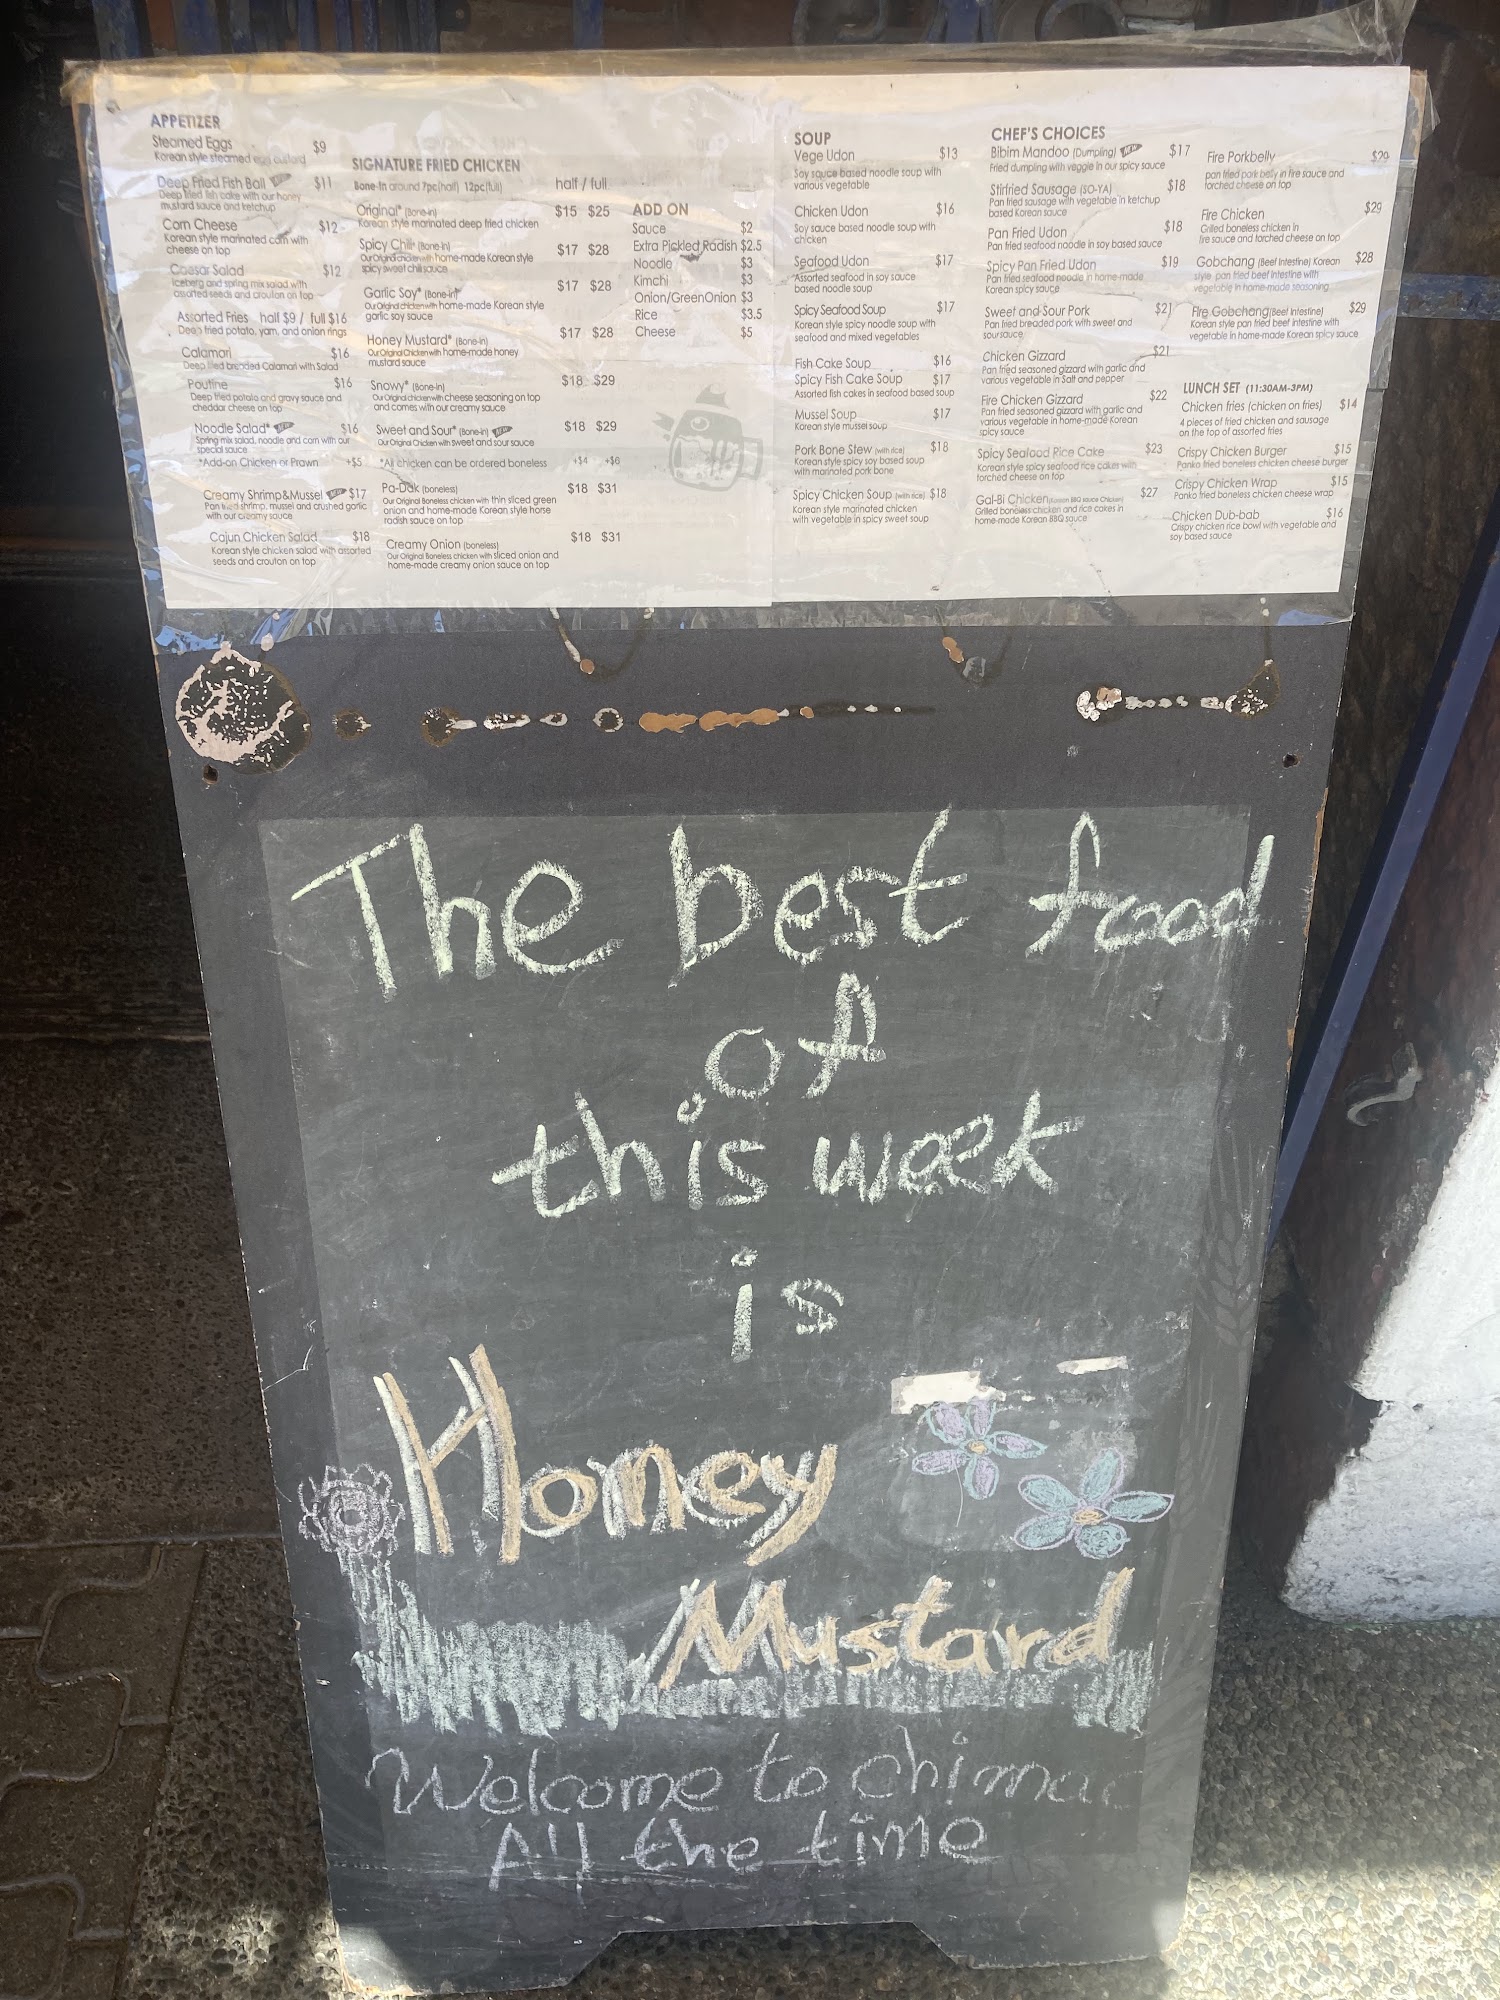 APPETIZER
Steamed Eggs $9
Korean style steamed egg custard
Deep Fried Fish Ball NEW $11
Deep fried fish cake with our honey
mustard sauce and ketchup
Corn Cheese $12
Korean style marinated corn with
cheese on top
Caesar Salad $12
Iceberg and spring mix salad with
assorted seeds and crouton on top
Assorted Fries half $9 / full $16
Deep fried potato, yam, and onion rings
Calamari $16
Deep fried breaded Calamari with Salad
Poutine $16
Deep fried potato and gravy sauce and
cheddar cheese on top
Noodle Salad* NEW $16
Spring mix salad, noodle and corn with our
special sauce
*Add-on Chicken or Prawn +$5
Creamy Shrimp&Mussel NEW $17
Pan fried shrimp, mussel and crushed garlic
with our creamy sauce
Cajun Chicken Salad $18
Korean style chicken salad with assorted
seeds and crouton on top
SIGNATURE FRIED CHICKEN
Bone-In around 7pc(half) 12pc(full) half / full
Original* (Bone-in) $15 $25
Korean style marinated deep fried chicken
Spicy Chili* (Bone-in) $17 $28
Our Original chicken with home-made Korean style
spicy sweet chili sauce
Garlic Soy* (Bone-in) $17 $28
Our Original chicken with home-made Korean style
garlic soy sauce
Honey Mustard* (Bone-in) $17 $28
Our Original Chicken with home-made honey
mustard sauce
Snowy* (Bone-in) $18 $29
Our Original chicken with cheese seasoning on top
and comes with our creamy sauce
Sweet and Sour* (Bone-in) NEW $18 $29
Our Original Chicken with sweet and sour sauce
*All chicken can be ordered boneless +$4 +$6
Pa-Dak (boneless) $18 $31
Our Original Boneless chicken with thin sliced green
onion and home-made Korean style horse
radish sauce on top
Creamy Onion (boneless) $18 $31
Our Original Boneless chicken with sliced onion and
home-made creamy onion sauce on top
ADD ON
Sauce $2
Extra Pickled Radish $2.5
Noodle $3
Kimchi $3
Onion/GreenOnion $3
Rice $3.5
Cheese $5
SOUP
Vege Udon $13
Soy sauce based noodle soup with
various vegetable
Chicken Udon $16
Soy sauce based noodle soup with
chicken
Seafood Udon $17
Assorted seafood in soy sauce
based noodle soup
Spicy Seafood Soup $17
Korean style spicy noodle soup with
seafood and mixed vegetables
Fish Cake Soup $16
Spicy Fish Cake Soup $17
Assorted fish cakes in seafood based soup
Mussel Soup $17
Korean style mussel soup
Pork Bone Stew (with rice) $18
Korean style spicy soy based soup
with marinated pork bone
Spicy Chicken Soup (with rice) $18
Korean style marinated chicken
with vegetable in spicy sweet soup
CHEF'S CHOICES
Bibim Mandoo (Dumpling) NEW $17
Fried dumpling with veggie in our spicy sauce
Stirfried Sausage (SO-YA) $18
Pan fried sausage with vegetable in ketchup
based Korean sauce
Pan Fried Udon $18
Pan fried seafood noodle in soy based sauce
Spicy Pan Fried Udon $19
Pan fried seafood noodle in home-made
Korean spicy sauce
Sweet and Sour Pork $21
Pan fried breaded pork with sweet and
sour sauce
Chicken Gizzard $21
Pan fried seasoned gizzard with garlic and
various vegetable in Salt and pepper
Fire Chicken Gizzard $22
Pan fried seasoned gizzard with garlic and
various vegetable in home-made Korean
spicy sauce
Spicy Seafood Rice Cake $23
Korean style spicy seafood rice cakes with
torched cheese on top
Gal-Bi Chicken (Korean BBQ sauce Chicken) $27
Grilled boneless chicken and rice cakes in
home-made Korean BBQ sauce
Fire Porkbelly $29
pan fried pork belly in fire sauce and
torched cheese on top
Fire Chicken $29
Grilled boneless chicken in
fire sauce and torched cheese on top
Gobchang (Beef Intestine) Korean $28
style pan fried beef intestine with
vegetable in home-made seasoning
Fire Gobchang(Beef Intestine) $29
Korean style pan fried beef intestine with
vegetable in home-made Korean spicy sauce
LUNCH SET (11:30AM-3PM)
Chicken fries (chicken on fries) $14
4 pieces of fried chicken and sausage
on the top of assorted fries
Crispy Chicken Burger $15
Panko fried boneless chicken cheese burger
Crispy Chicken Wrap $15
Panko fried boneless chicken cheese wrap
Chicken Dub-bab $16
Crispy chicken rice bowl with vegetable and
soy based sauce
The best food
of
this week
is
Honey
Mustard
Welcome to chimac
All the time